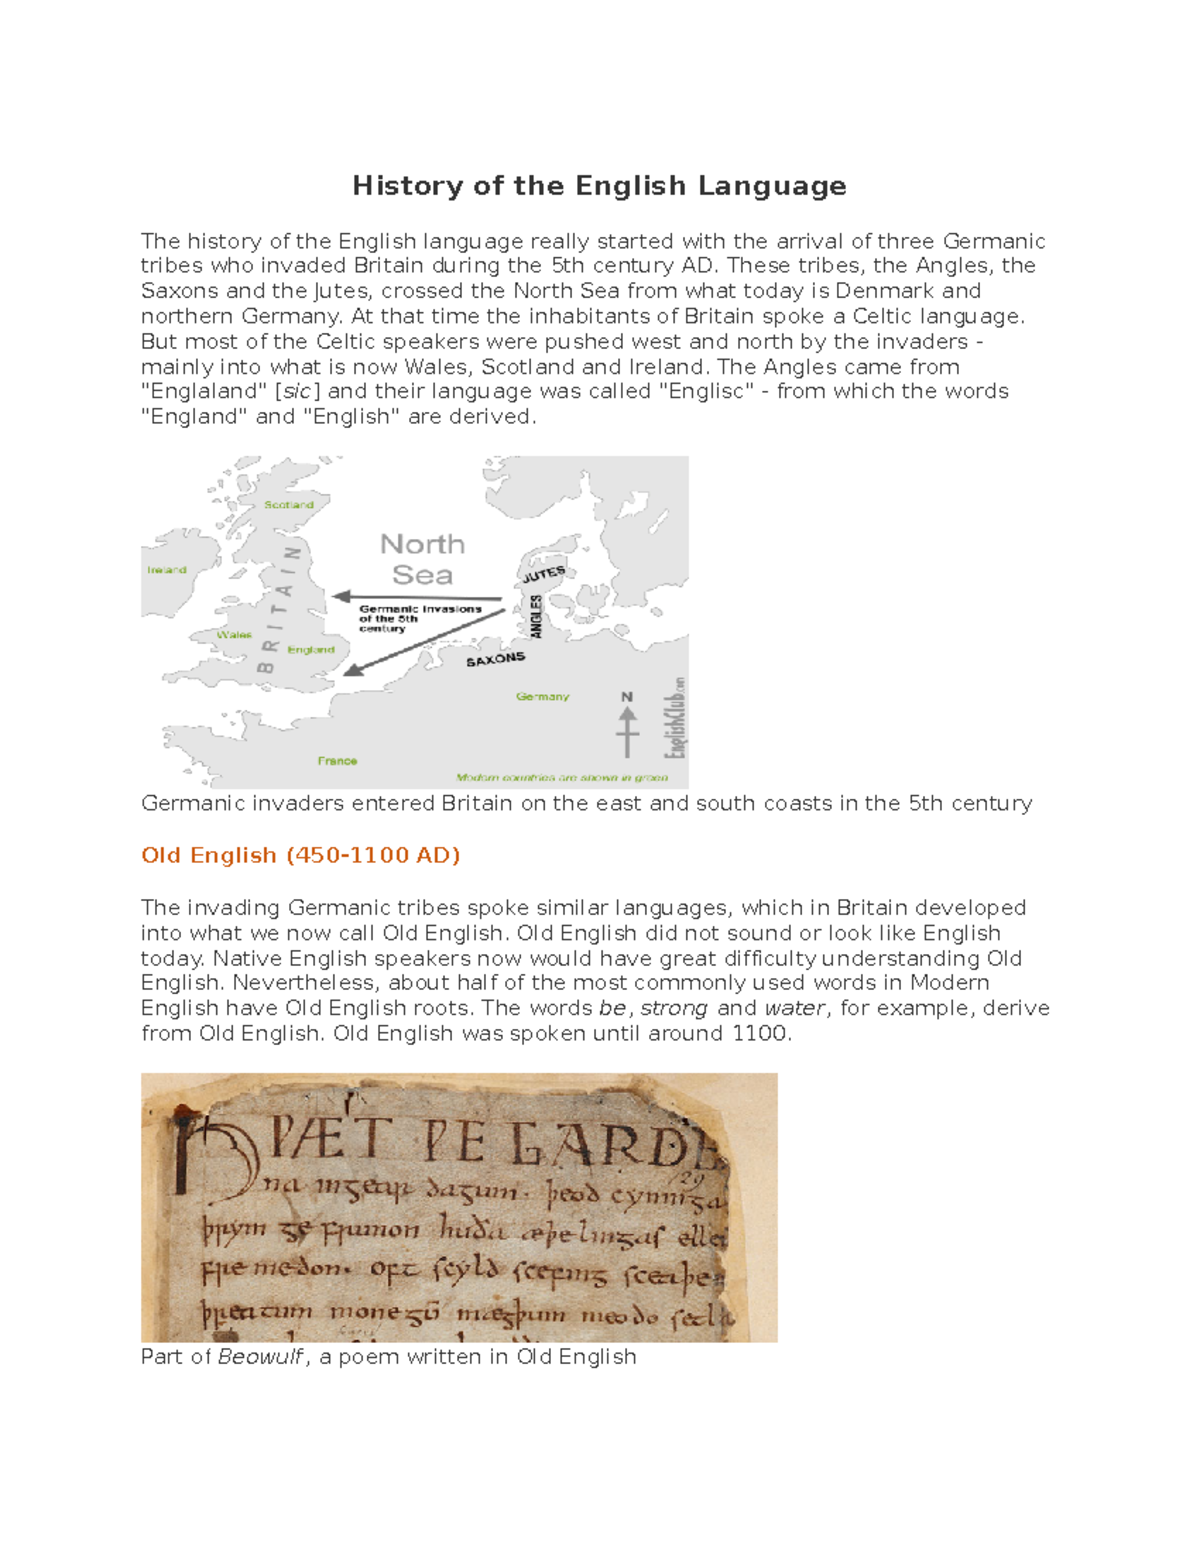 History of the English Language
The history of the English language really started with the arrival of three Germanic
tribes who invaded Britain during the 5th century AD. These tribes, the Angles, the
Saxons and the Jutes, crossed the North Sea from what today is Denmark and
northern Germany. At that time the inhabitants of Britain spoke a Celtic language.
But most of the Celtic speakers were pushed west and north by the invaders -
mainly into what is now Wales, Scotland and Ireland. The Angles came from
"Englaland" [sic] and their language was called "Englisc" - from which the words
"England" and "English" are derived.
Scotland
North
Sea
BRITAIN
Ireland
JUTES
Germanic invasions
of the 5th
century
ANGLES
Wales
England
SAXONS
Germany
N
EnglishClub.com
France
Modern countries are shown in green
Germanic invaders entered Britain on the east and south coasts in the 5th century
Old English (450-1100 AD)
The invading Germanic tribes spoke similar languages, which in Britain developed
into what we now call Old English. Old English did not sound or look like English
today. Native English speakers now would have great difficulty understanding Old
English. Nevertheless, about half of the most commonly used words in Modern
English have Old English roots. The words be, strong and water, for example, derive
from Old English. Old English was spoken until around 1100.
HǷÆT ǷE GARDE
na ingear dagum. þeod cyninga
þrym ge frunon huða æþelingas elle
fremedon. oft scyld scefing sceaþe
þreatum monegū mægþum meodo setla
Part of Beowulf, a poem written in Old English